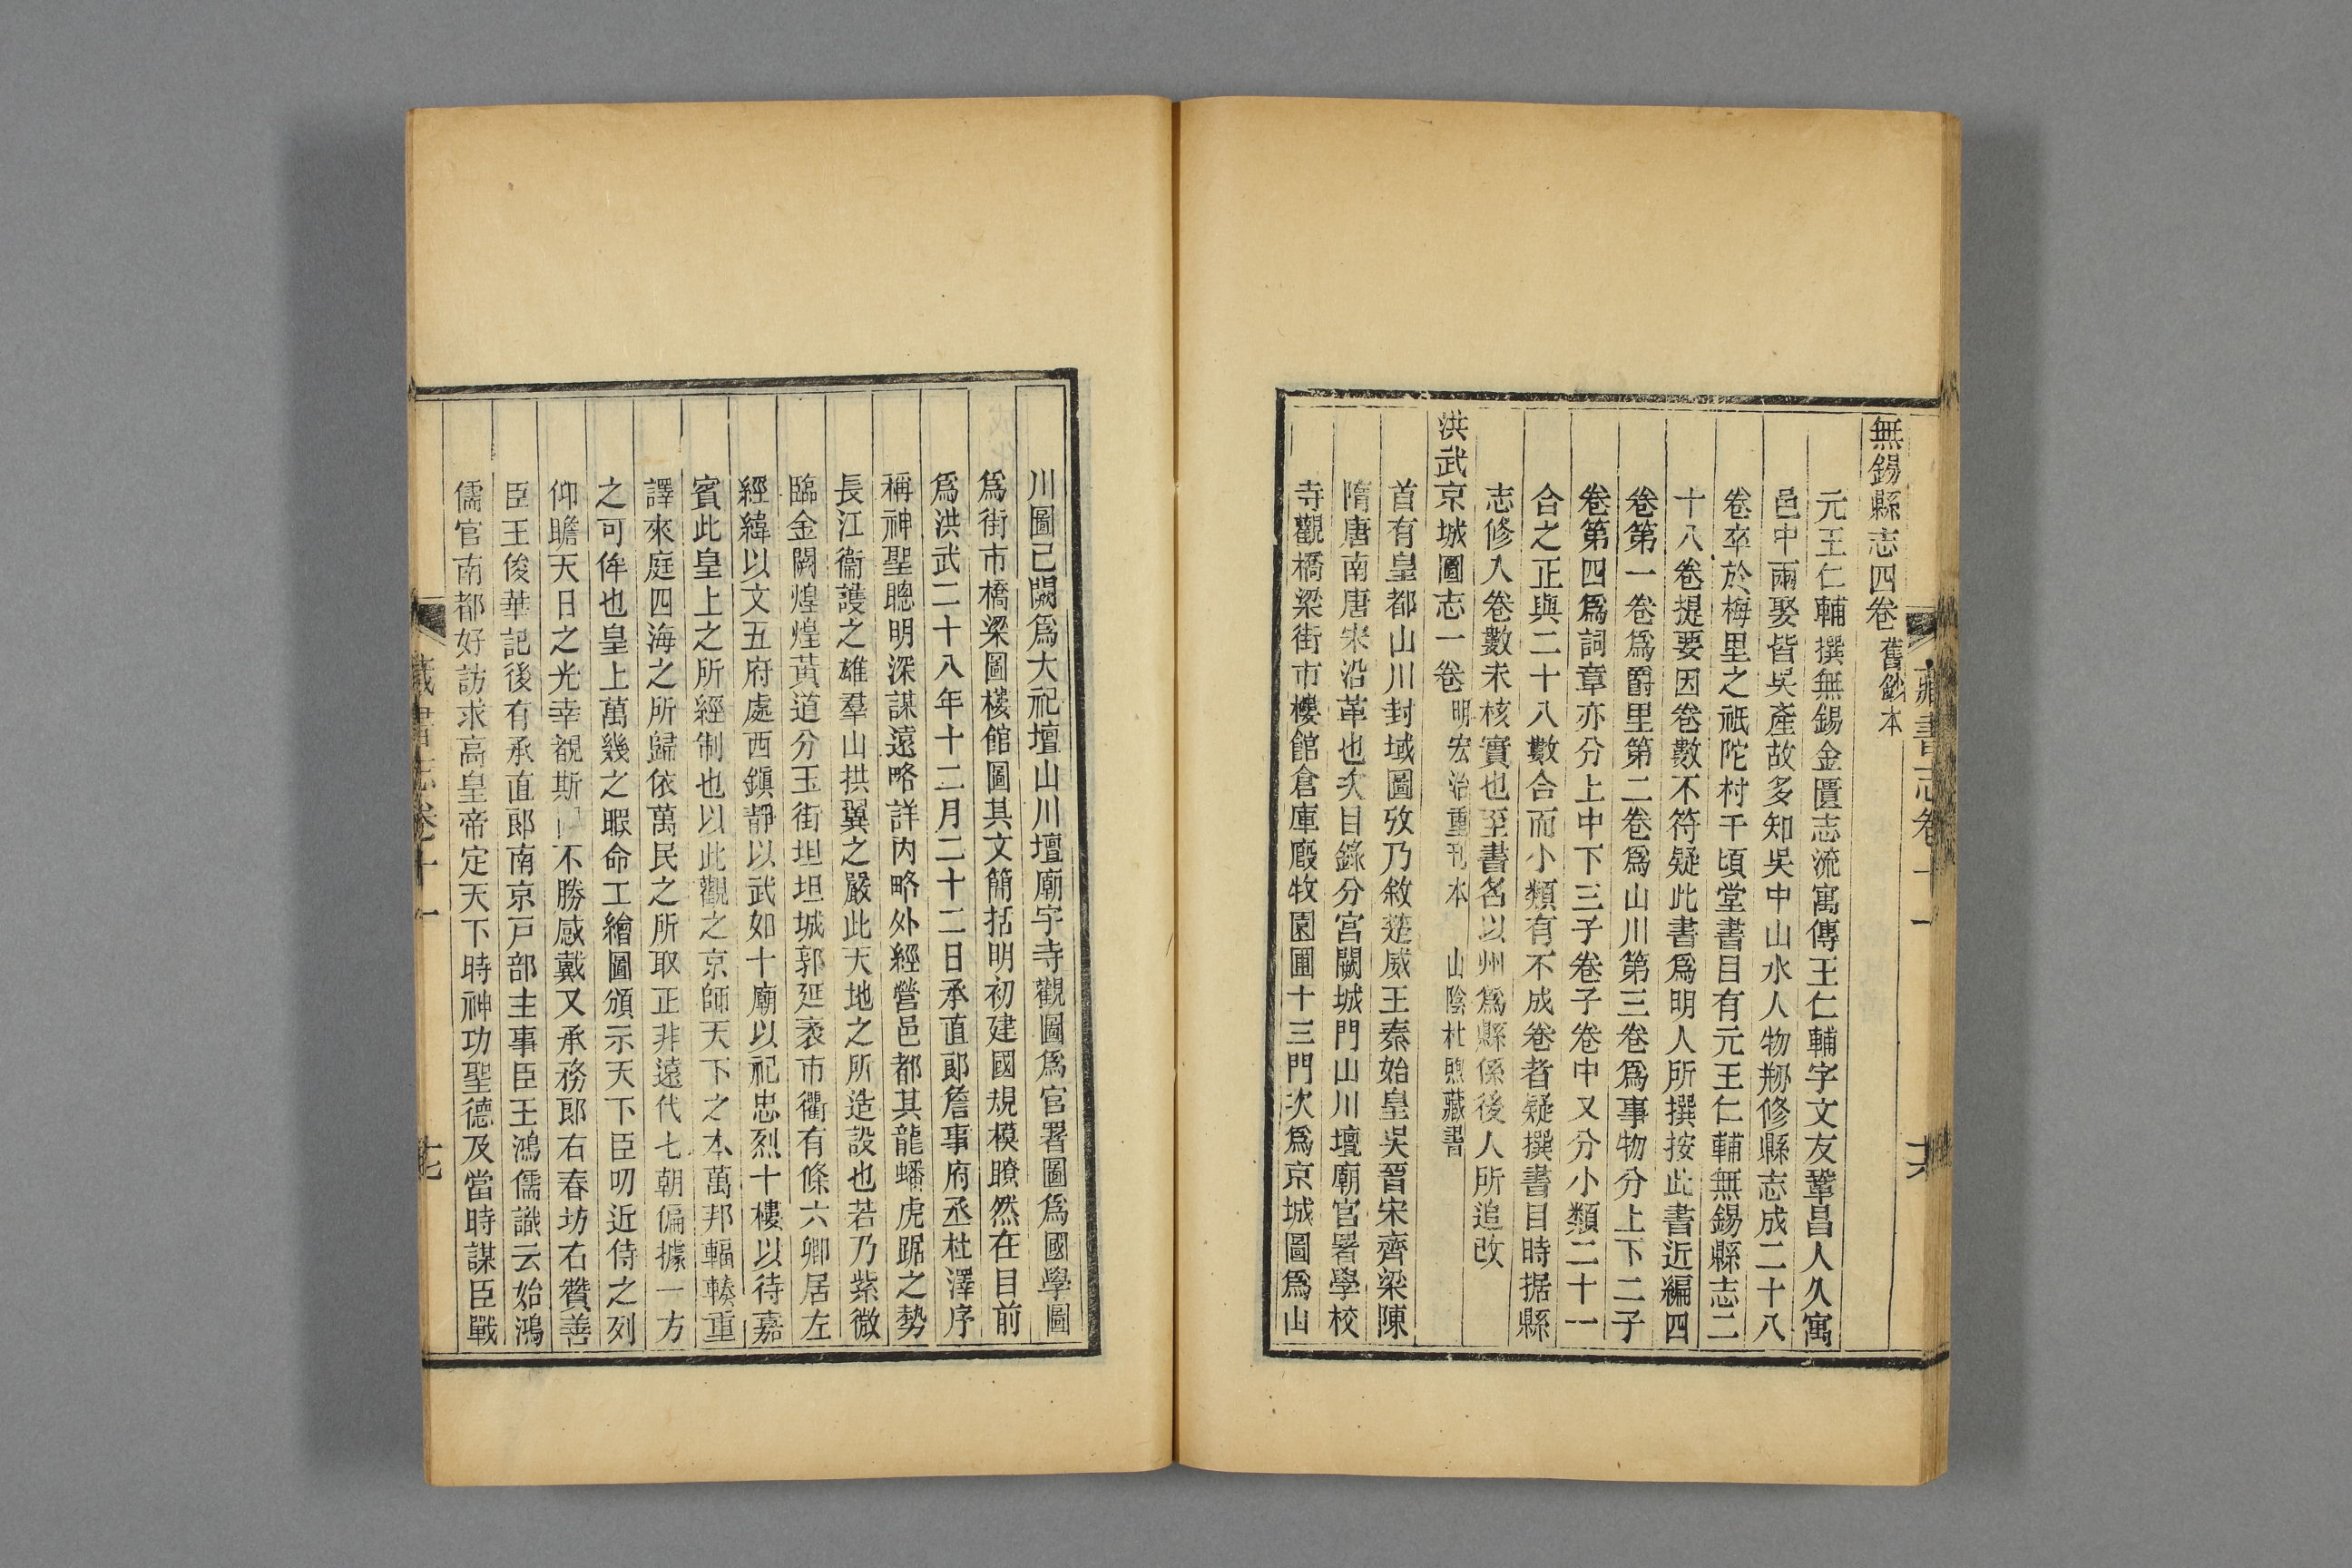 無錫縣志四卷 舊鈔本
元王仁輔撰無錫金匱志流寓傳王仁輔字文友鞏昌人久寓
邑中兩娶皆吳產故多知吳中山水人物郡修縣志成二十八
卷卒於梅里之祇陀村千頃堂書目有元王仁輔無錫縣志二
十八卷提要因卷數不符疑此書爲明人所撰按此書近編四
卷第一卷爲爵里第二卷爲山川第三卷爲事物分上下二子
卷第四爲詞章亦分上中下三子卷子卷中又分小類二十一
合之正與二十八數合而小類有不成卷者疑撰書目時据縣
志修入卷數未核實也至書名以州爲縣係後人所追改
洪武京城圖志一卷 明宏治重刊本 山陰杜煦藏書
首有皇都山川封域圖攷乃敘楚威王秦始皇吳晉宋齊梁陳
隋唐南唐宋沿革也次目錄分宮闕城門山川壇廟官署學校
寺觀橋梁街市樓館倉庫廄牧園圃十三門次爲京城圖爲山
藏書志卷十一
川圖已闕爲大祀壇山川壇廟宇寺觀圖爲官署圖爲國學圖
爲街市橋梁圖樓館圖其文簡括明初建國規模瞭然在目前
爲洪武二十八年十二月二十二日承直郎詹事府丞杜澤序
稱神聖聰明深謀遠略詳內略外經營邑都其龍蟠虎踞之勢
長江衞護之雄羣山拱翼之嚴此天地之所造設也若乃紫微
臨金闕煌煌黃道分玉街坦坦城郭延袤市衢有條六卿居左
經緯以文五府處西鎭靜以武如十廟以祀忠烈十樓以待嘉
賓此皇上之所經制也以此觀之京師天下之本萬邦輻輳重
譯來庭四海之所歸依萬民之所取正非遠代七朝偏據一方
之可侔也皇上萬幾之暇命工繪圖頒示天下臣叨近侍之列
仰瞻天日之光幸覩斯不勝感戴又承務郎右春坊右贊善
臣王俊華記後有承直郎南京戸部主事臣王鴻儒識云始鴻
儒官南都好訪求高皇帝定天下時神功聖德及當時謀臣戰
藏書志卷十一